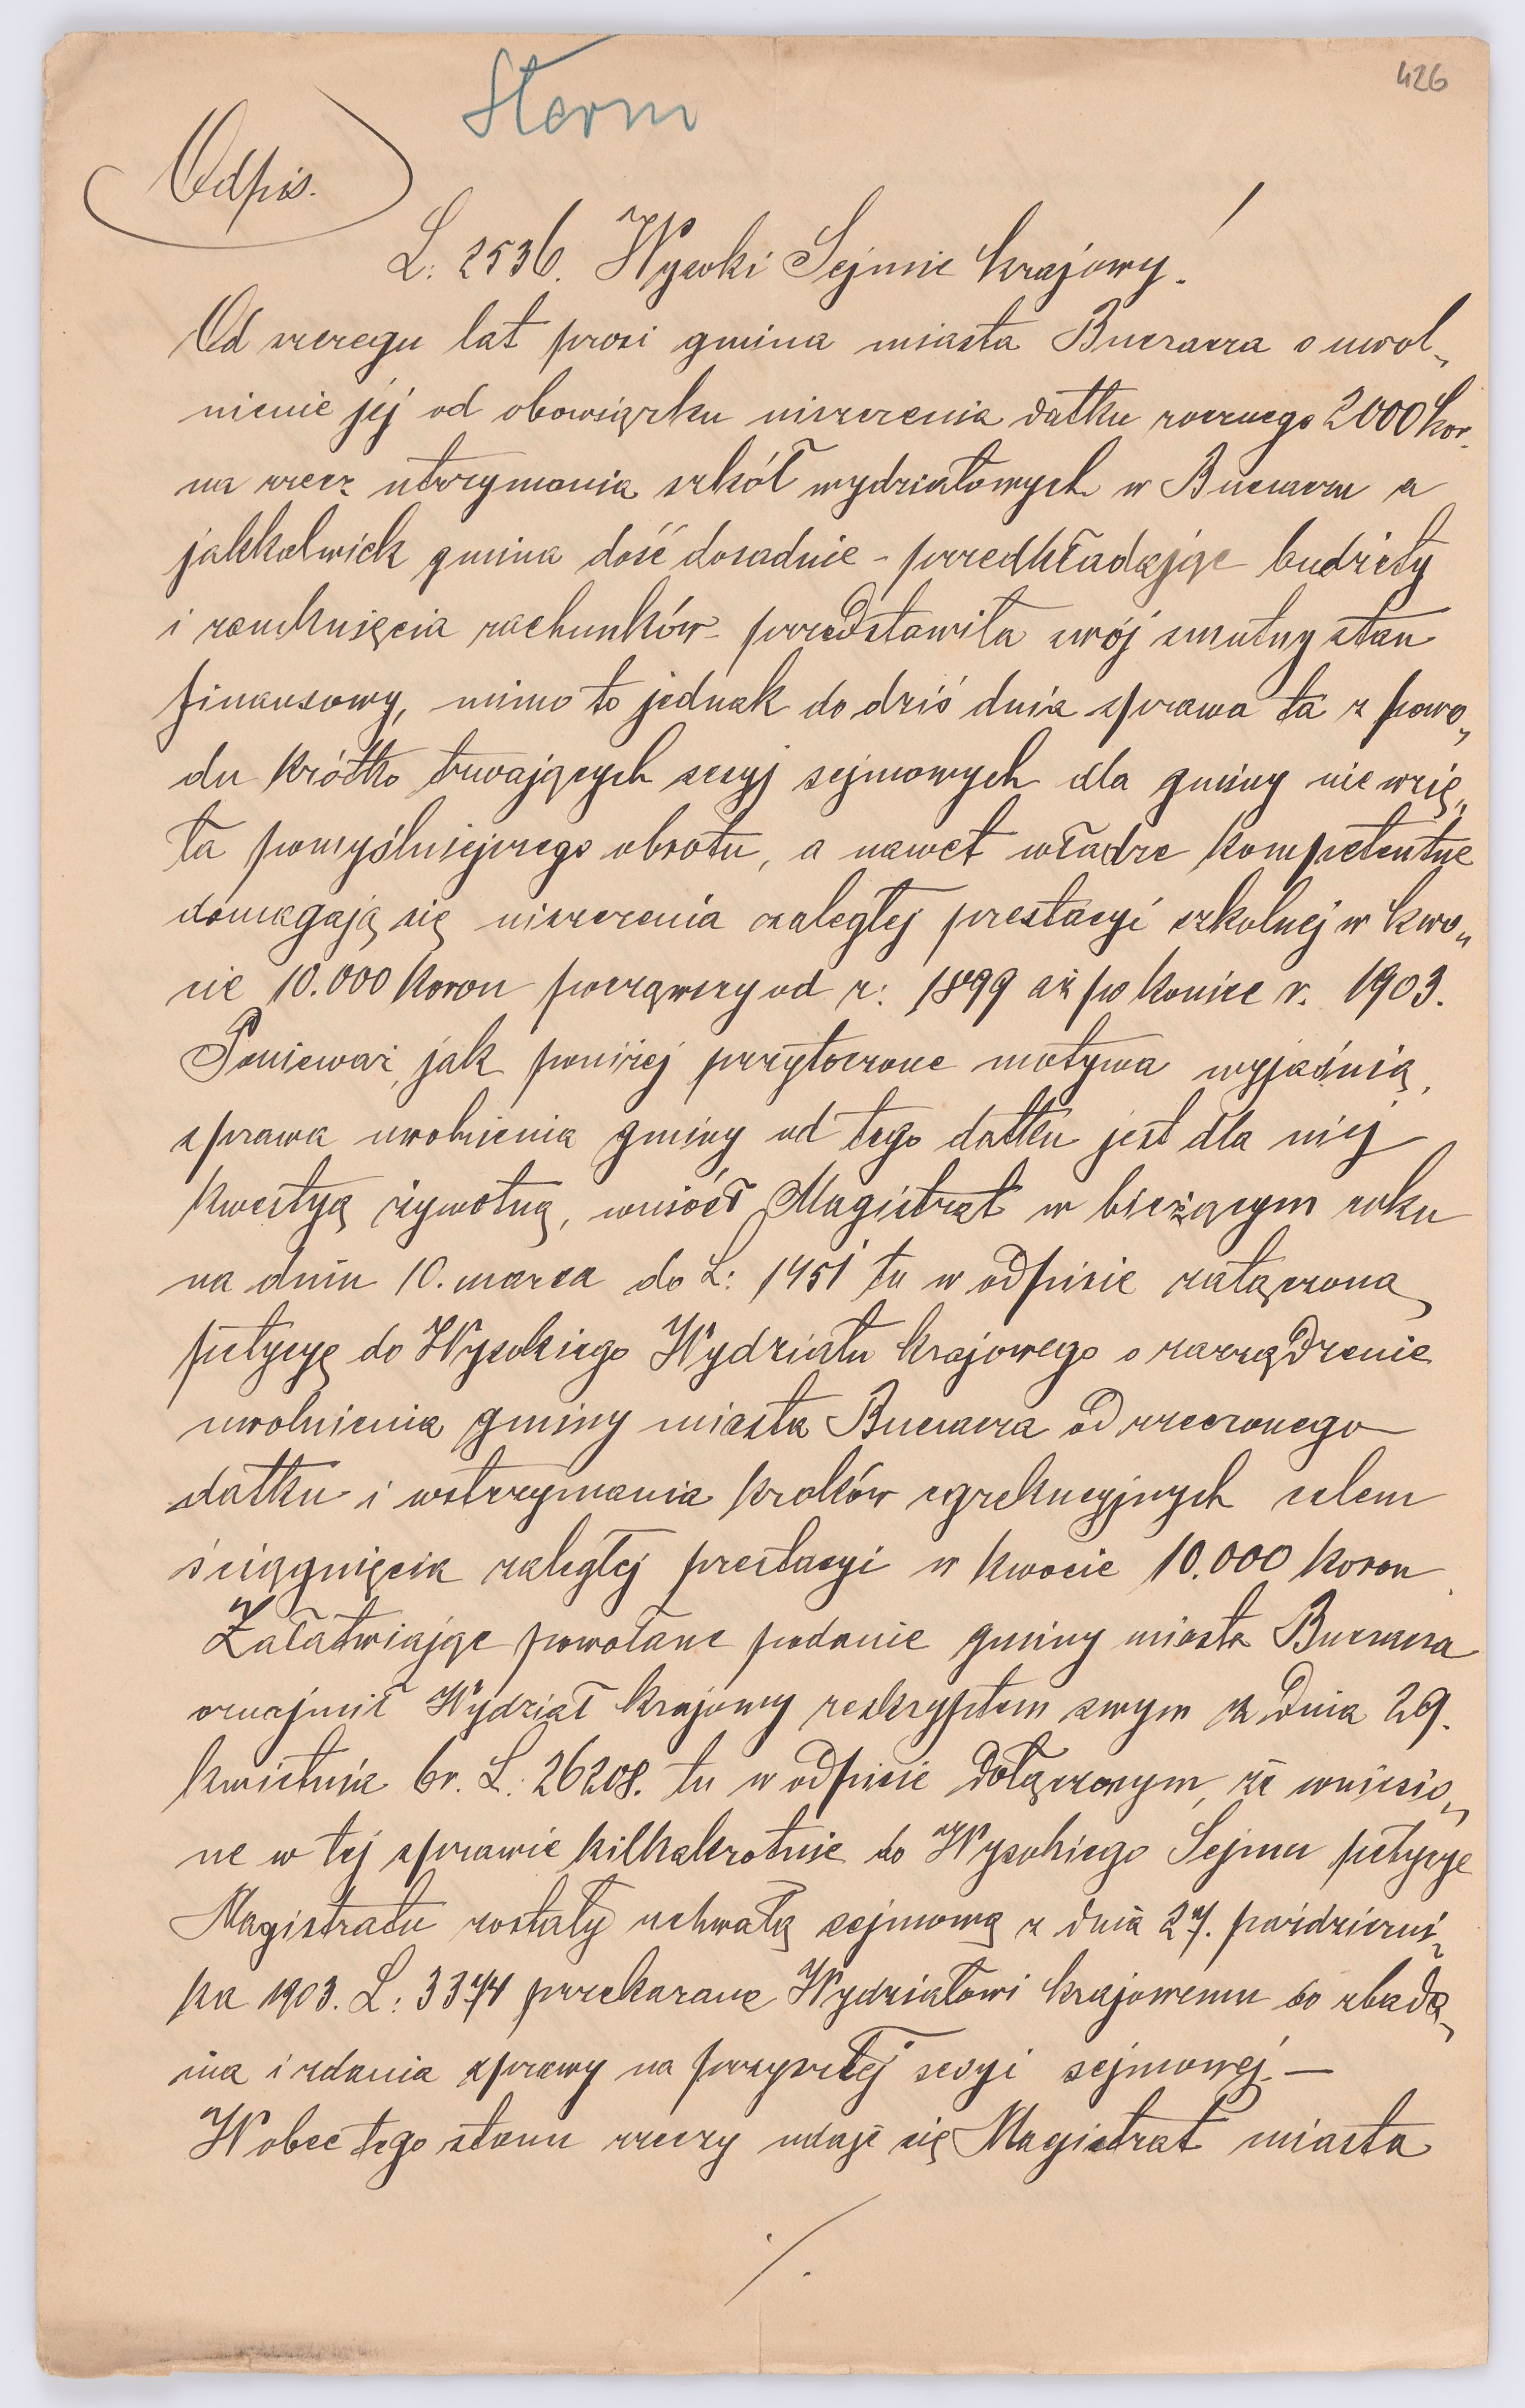 426
Stern
Odpis.
L: 2536. Wysoki Sejmie krajowy!
Od szeregu lat prosi gmina miasta Buczacza o uwol„
nienie jej od obowiązku uiszczenia datku rocznego 2000 kor.
na rzecz utrzymania szkół wydziałowych w Buczaczu a
jakkolwiek gmina dość dosadnie – przedkładając budżety
i zamknięcia rachunków – przedstawiła swój smutny stan
finansowy, mimo to jednak do dziś dnia sprawa ta z powo„
du krótko trwających sesyj sejmowych dla gminy nie wzię„
ła pomyślniejszego obrotu, a nawet władze kompetentne
domagają się uiszczenia zaległej prestacyi szkolnej w kwo„
cie 10.000 koron począwszy od r: 1899 aż po koniec r. 1903.
Ponieważ, jak poniżej przytoczone motywa wyjaśnią,
sprawa uwolnienia gminy od tego datku jest dla niej
kwestyą żywotną, wniósł Magistrat w bieżącym roku
na dniu 10. marca do L: 1451 tu w odpisie załączoną
petycyę do Wysokiego Wydziału krajowego o zarządzenie
uwolnienia gminy miasta Buczacza od rzeczonego
datku i wstrzymania kroków egzekucyjnych celem
ściągnięcia zaległej prestacyi w kwocie 10.000 koron.
Załatwiając powołane podanie gminy miasta Buczacza
oznajmił Wydział krajowy reskryptem swym z dnia 29.
kwietnia br. L: 26208. tu w odpisie dołączonym, że wniesio„
ne w tej sprawie kilkakrotnie do Wysokiego Sejmu petycye
Magistratu zostały uchwałą sejmową z dnia 27. październi„
ka 1903. L: 3374 przekazane Wydziałowi krajowemu do zbada„
nia i zdania sprawy na przyszłej sesyi sejmowej. –
Wobec tego stanu rzeczy udaje się Magistrat miasta
./.